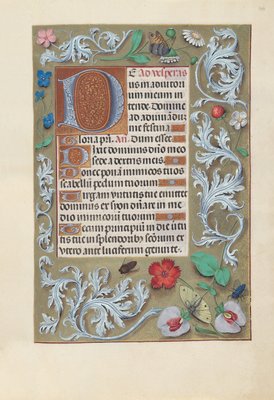 DE Ad vesperas
us in adiutor
ium meum in
tende Domine
ad adiuvandū
me festina
Gloria pri. An̄. Dum esset.
Dixit dominus dño meo
sede a dextris meis.
Donec ponā inimicos tuos
scabellū pedum tuorum
Virgam virtutis tue emittet
dominus ex syon dñare in me
dio inimicorū tuorum
Tecum principiū in die virtu
tis tue in splendoribus scōrum ex
utero ante luciferum genui te